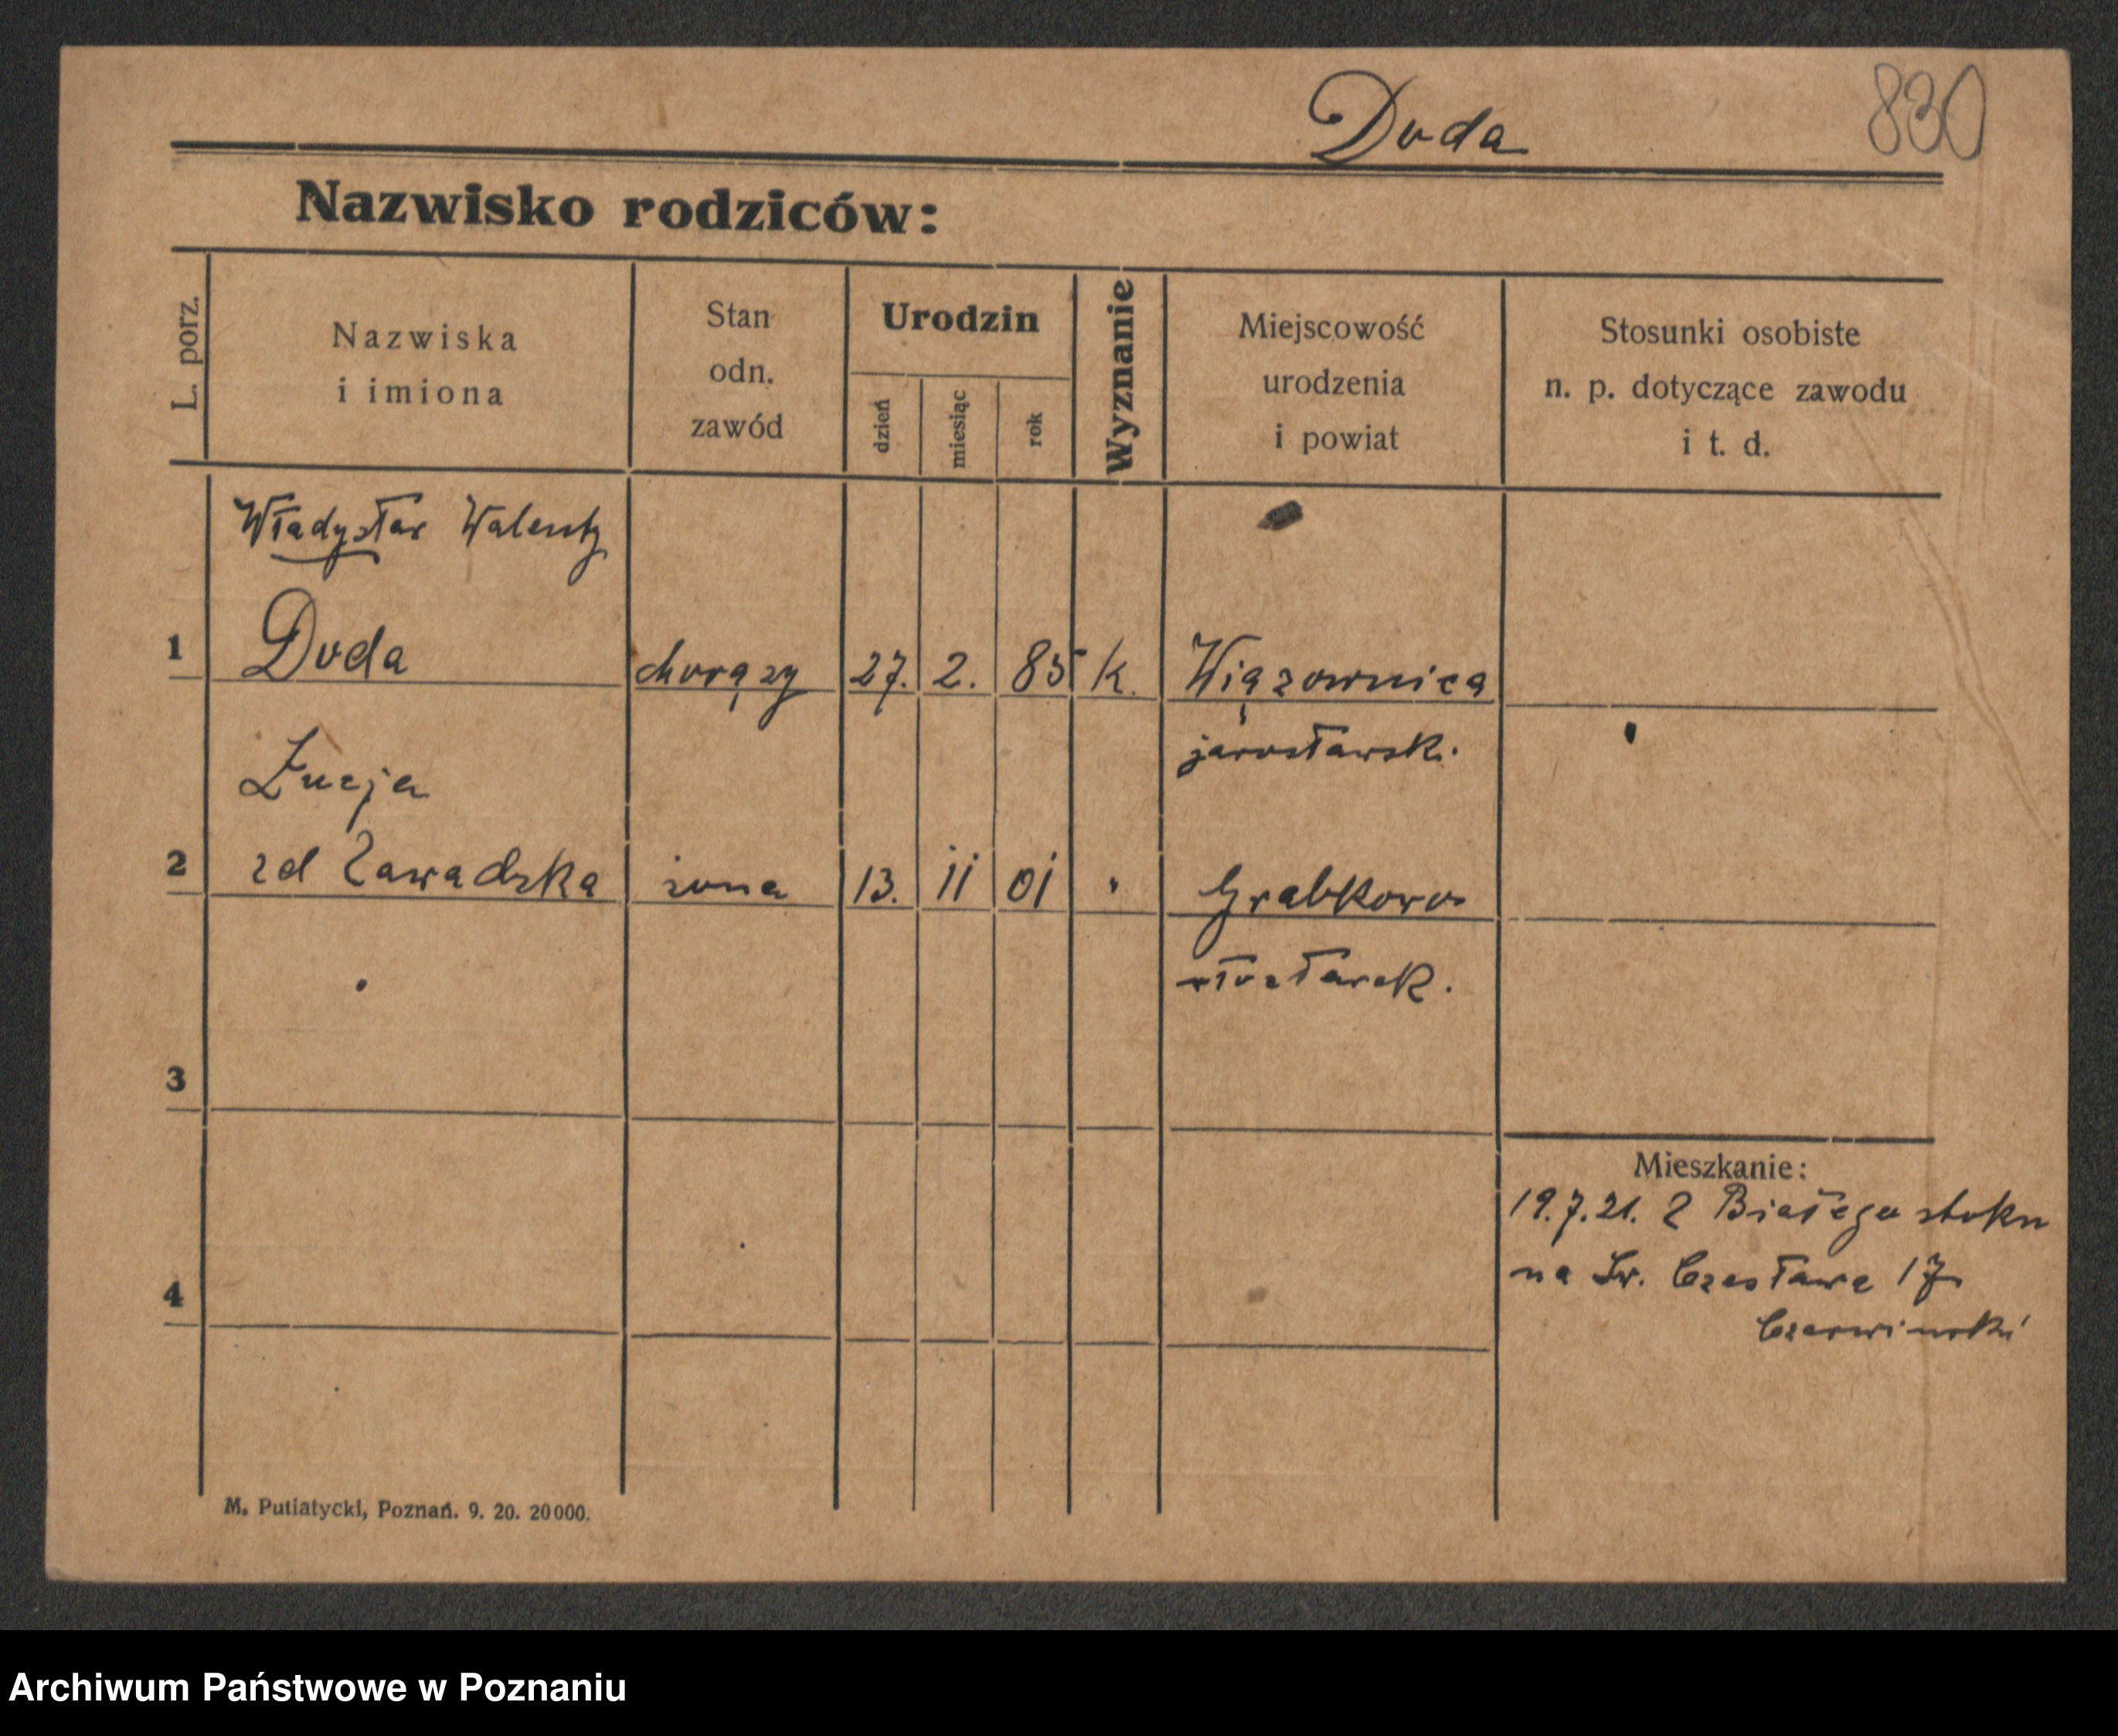 Duda
830
Nazwisko rodziców:
L. porz.
Nazwiska
i imiona
Stan
odn.
zawód
Urodzin
dzień
miesiąc
rok
Wyznanie
Miejscowość
urodzenia
i powiat
Stosunki osobiste
n. p. dotyczące zawodu
i t. d.
Władysław Walenty
1 Duda chorąży 27. 2. 85 k. Wiązownica
jarosławsk.
Łucja
2 zd Zawadzka żona 13. 11 01 Grabkowo
włocławsk.
3
4
Mieszkanie:
19.7.21. z Białego stoku
na Św. Czesława 17
Czerwiński
M. Putiatycki, Poznań. 9. 20. 20000.
Archiwum Państwowe w Poznaniu